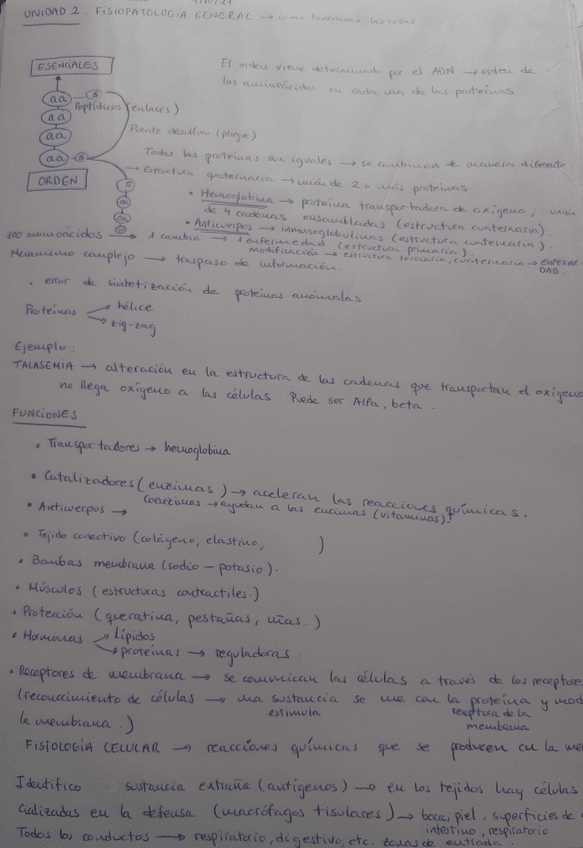 UNIDAD 2. FISIOPATOLOGÍA GENERAL → como funcionan las cosas
ESENCIALES
El orden viene determinado por el ADN → orden de
los aminoácidos en cada una de las proteínas.
aa S
Peptídicos (enlaces)
aa
aa
Puente desulfuro (pliegue)
aa S
Todas las proteínas son iguales → se combinan de manera diferente
ORDEN
→ Estructura cuaternaria → unión de 2 o más proteínas
S
• Hemoglobina → proteína transportadora de oxígeno; unión
de 4 cadenas ensambladas (estructura cuaternaria)
aa
• Anticuerpos → inmunoglobulinas (estructura cuaternaria).
100 aminoácidos → 1 cambia → 1 enfermedad (estructura primaria).
modificación → estructura terciaria, cuaternaria → ENFERME
DAD
Mecanismo complejo → traspaso de información.
• error de sintetización de proteínas anómalas
Proteínas → hélice
→ zig-zag
Ejemplo:
TALASEMIA → alteración en la estructura de las cadenas que transportan el oxígeno
no llega oxígeno a las células. Puede ser Alfa, beta.
FUNCIONES
• Transportadores → hemoglobina
• Catalizadores (enzimas) → aceleran las reacciones químicas.
coenzimas → ayudan a las encimas (vitaminas).
• Anticuerpos →
• Tejido conectivo (colágeno, elastino, )
• Bombas membrana (sodio - potasio).
• Músculos (estructuras contractiles.)
• Protección (queratina, pestañas, uñas.)
• Hormonas → Lípidos
→ proteínas → reguladoras.
• Receptores de membrana → se comunican las células a través de los receptores
(reconocimiento de células → una sustancia se une con la proteína y mod
estimula receptora de la
la membrana.) membrana
FISIOLOGÍA CELULAR → reacciones químicas que se producen en la me
Identifico sustancia extraña (antígenos) → en los tejidos hay células
cializadas en la defensa (macrófagos tisulares) → boca, piel, superficies de
intestino, respiratorio
Todos los conductos → respiratorio, digestivo, etc. zonas de entrada.